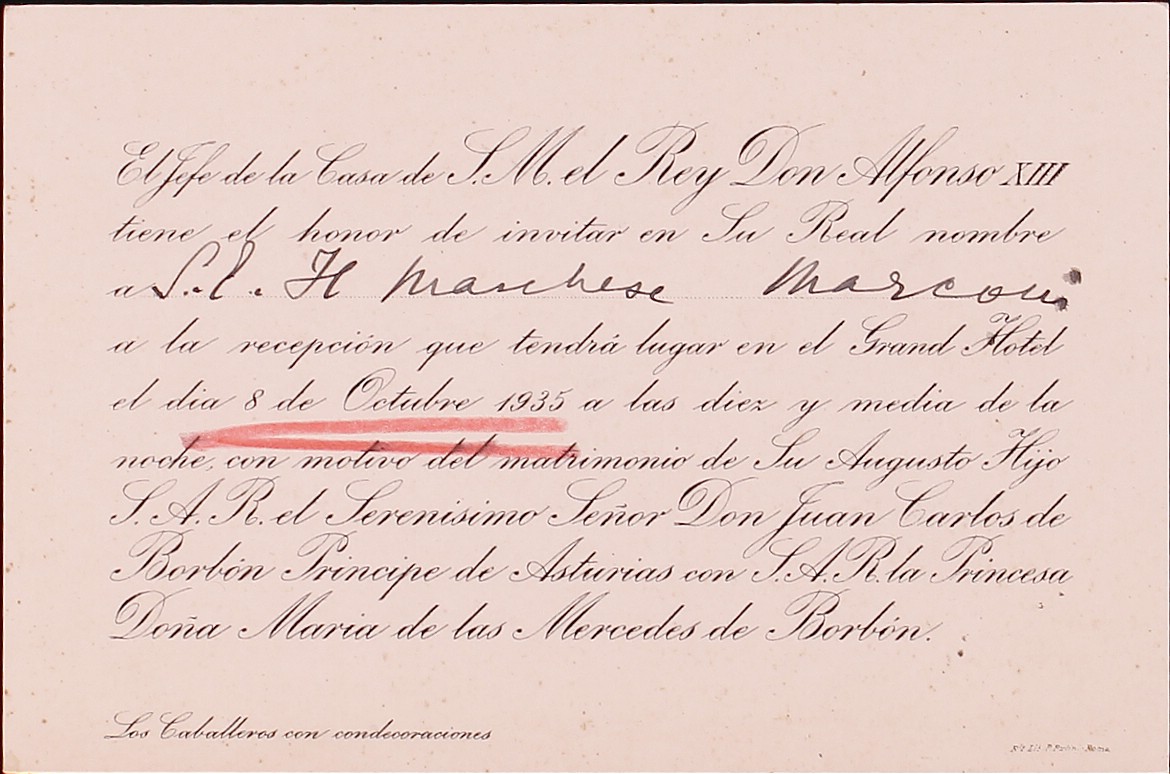 El Jefe de la Casa de S. M. el Rey Don Alfonso XIII
tiene el honor de invitar en Su Real nombre
a S. E. H Marchese Marconi
a la recepción que tendrá lugar en el Grand Hotel
el dia 8 de Octubre 1935 a las diez y media de la
noche, con motivo del matrimonio de Su Augusto Hijo
S. A. R. el Serenisimo Señor Don Juan Carlos de
Borbón Principe de Asturias con S. A. R. la Princesa
Doña Maria de las Mercedes de Borbón.
Los Caballeros con condecoraciones
Roma